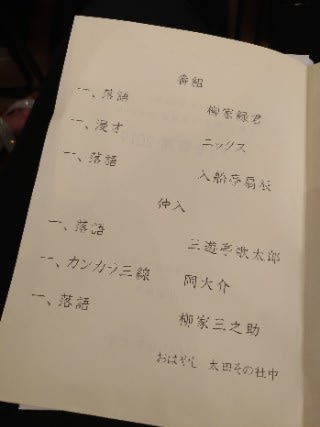 番組
一、落語 柳家緑君
一、漫才 ニックス
一、落語 入船亭扇辰
仲入
一、落語 三遊亭歌太郎
一、カンカラ三線 岡大介
一、落語 柳家三之助
おはやし 太田その社中